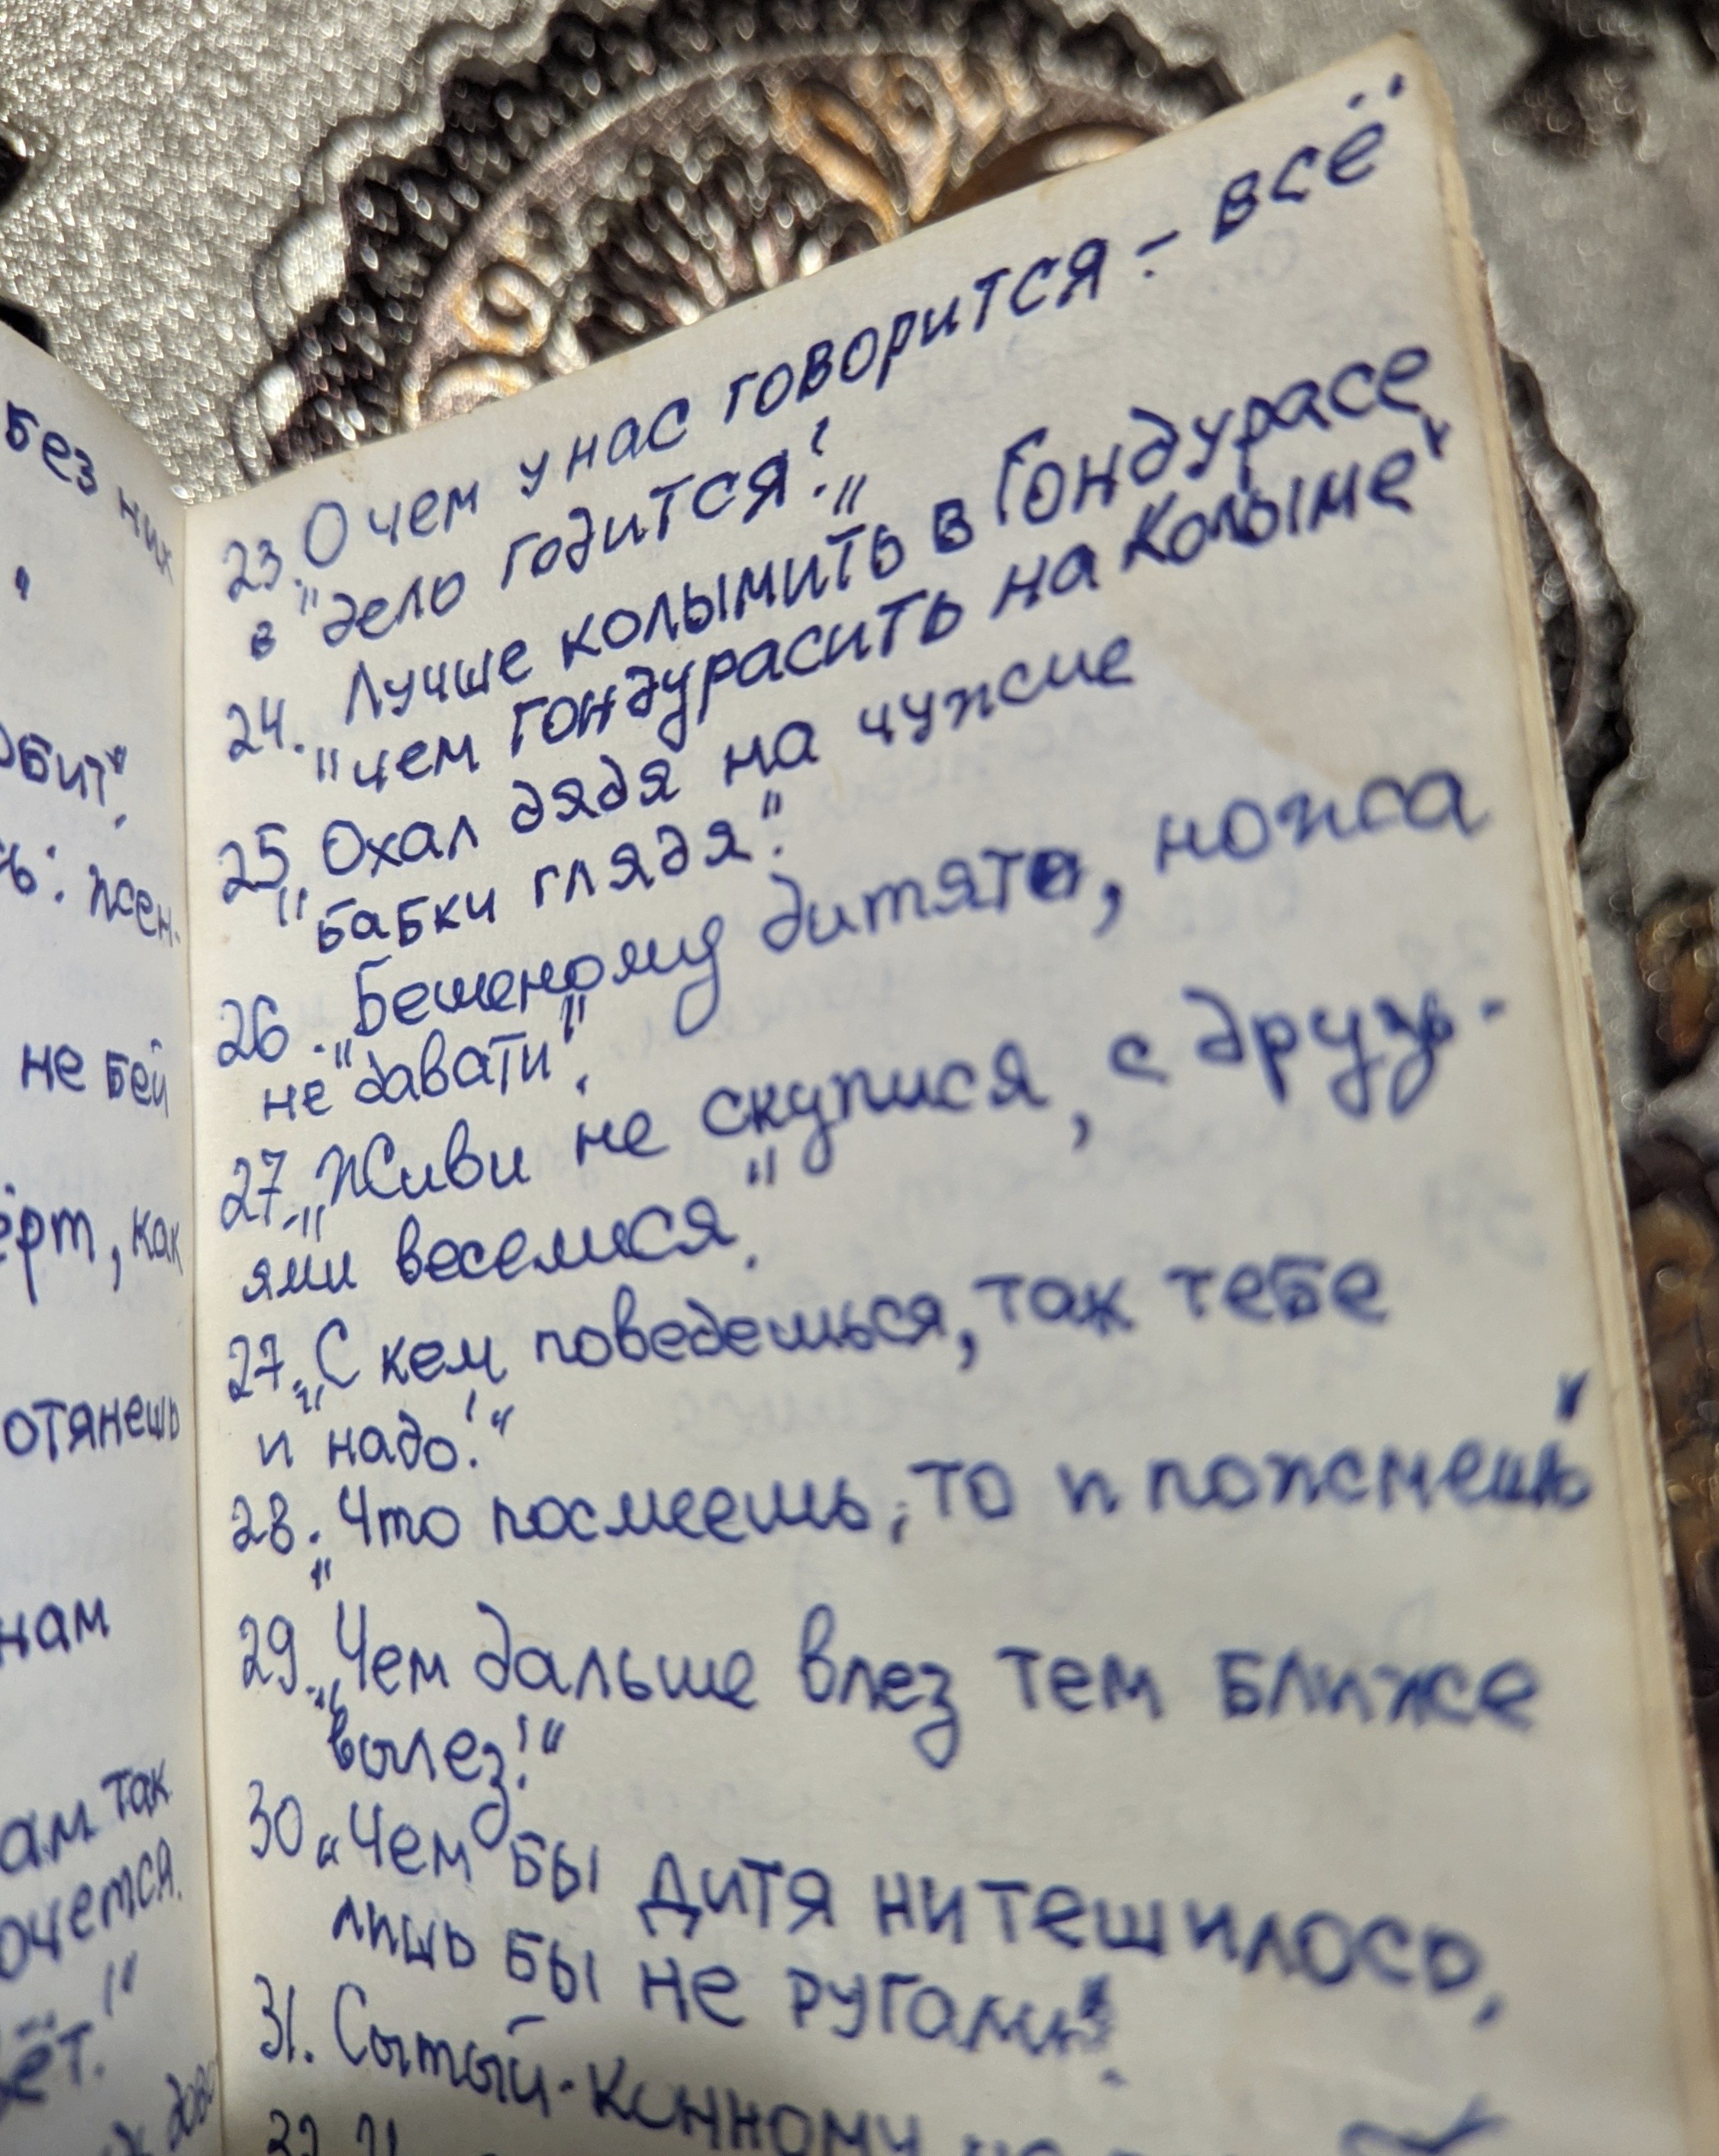 Без них
обит".
ь: жен-
не бей
ёрт, как
отянешь
нам
ам так
очется.
ёт.!"
23. О чем у нас говорится - всё
в "дело годится!"
24. Лучше колымить в Гондурасе
"чем гондурасить на Колыме"
25. "Охал дядя на чужие
бабки глядя".
26. "Бешеному дитято, ножа
не давати".
27. "Живи не скупися, с друзь-
ями веселися".
27. "С кем поведешься, так тебе
и надо!"
28. "Что посмеешь, то и пожмешь"
29. "Чем дальше влез тем ближе
вылез!"
30 "Чем бы дитя ни тешилось,
лишь бы не руками".
31. Сытый - конному не
32.